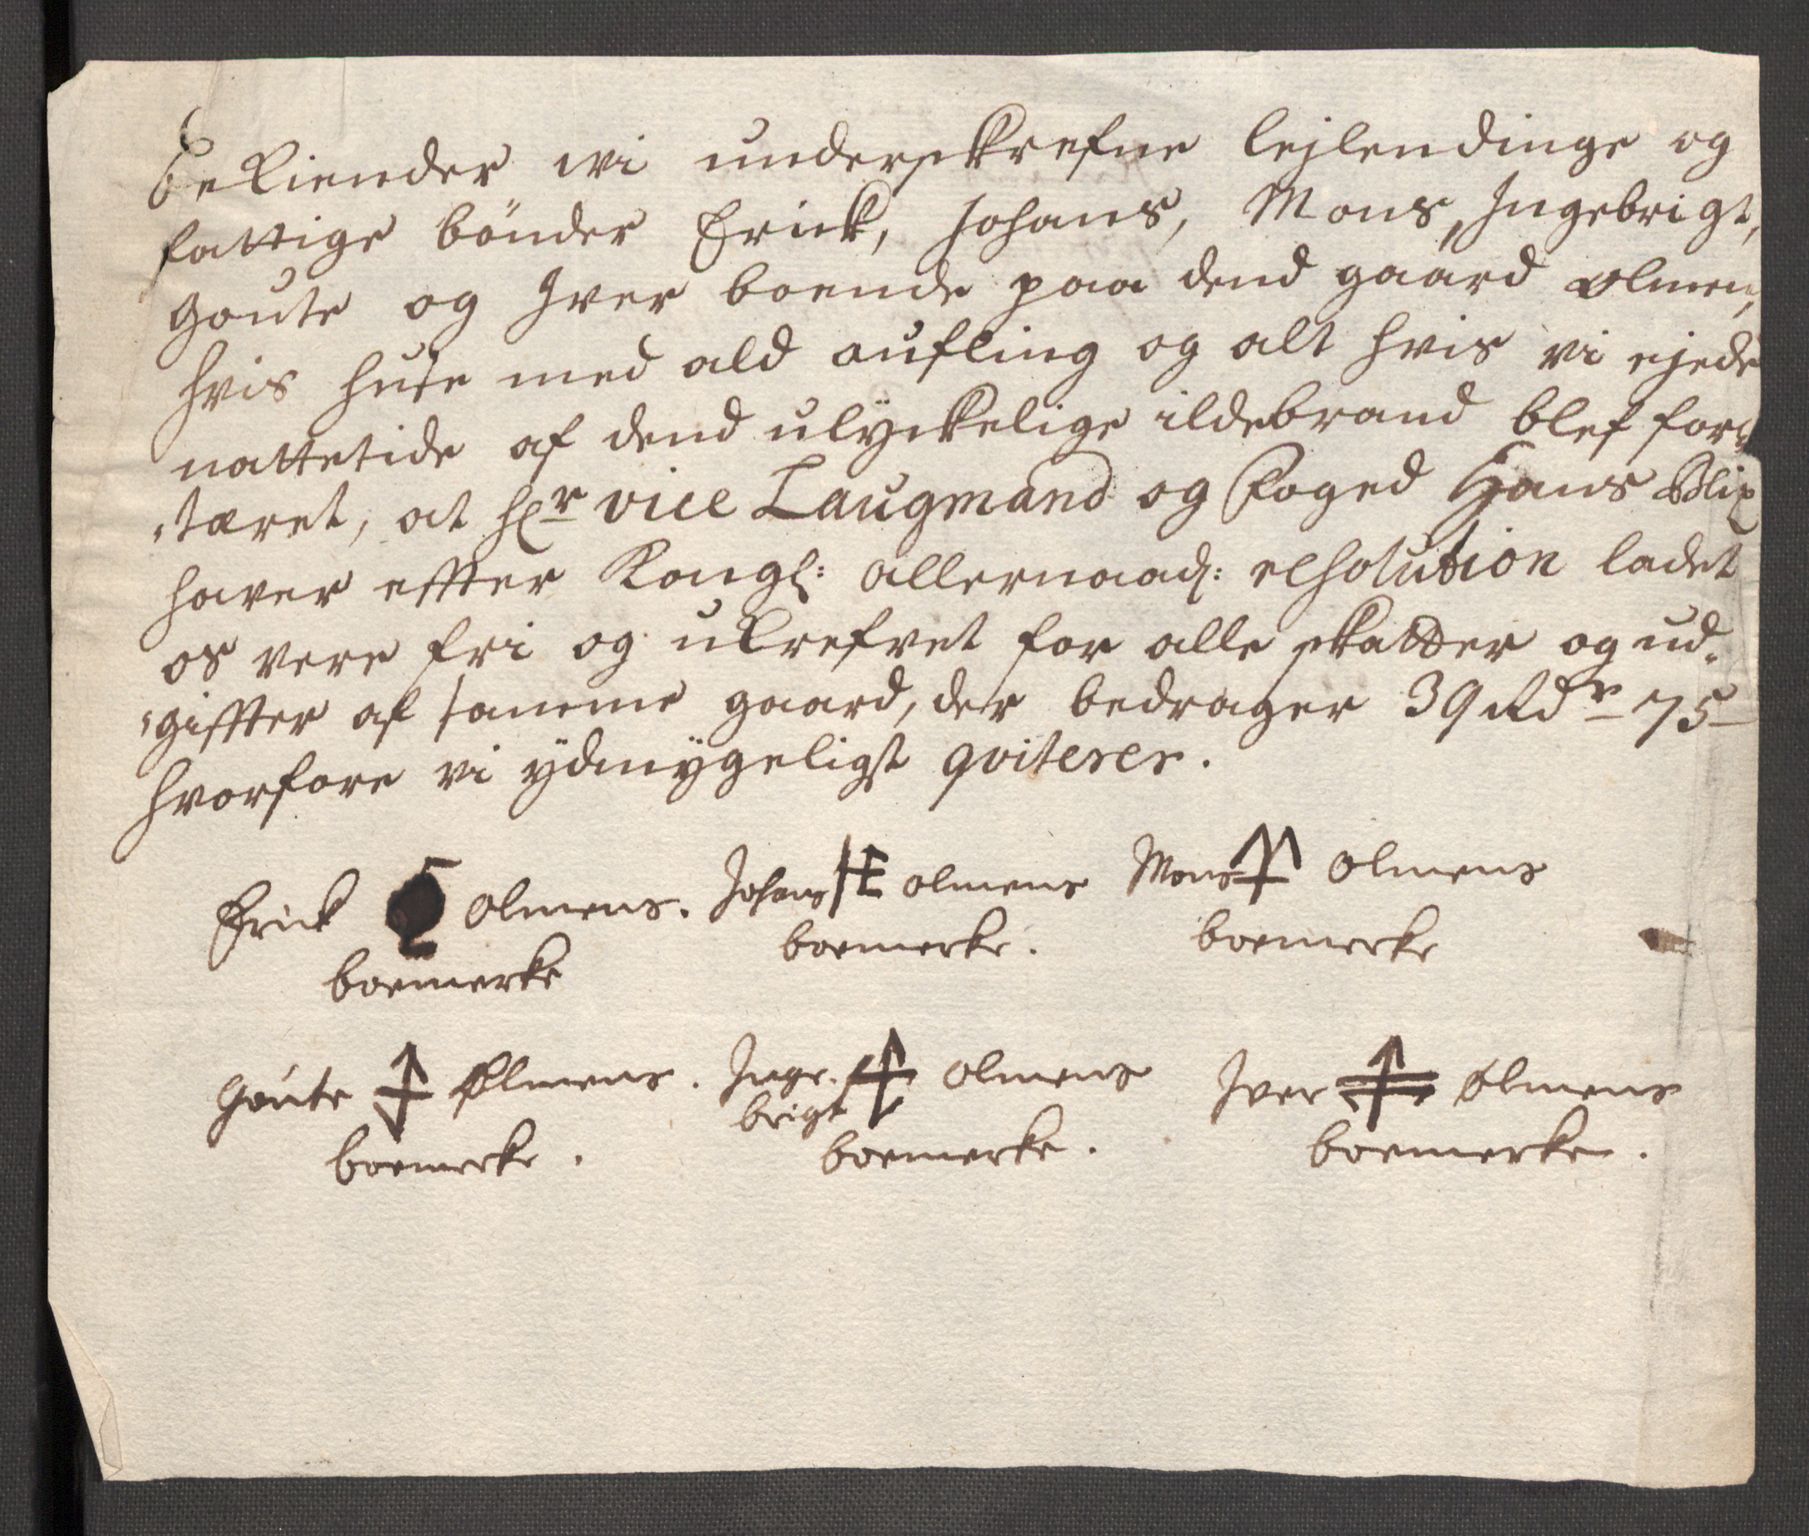 Bekiender wi underskrefne lejlendinge og
fattige bønder Erick, Johans, Mons, Ingebrigt,
Goute og Iver boende paa dend gaard Olmen,
hvis huse med ald aufling og alt hvis vi ejede
nattetide af dend ulyckelige ildebrand blef for-
tæret, at hr vice Laugmand og Foged Hans Blix
haver effter Kongl: allernaad: resolution ladet
os vere fri og ukrefvet for alle skatter og ud-
giffter af samme gaard, der bedrager 39 Rdr 75
hvorfore vi ydmygeligst qviterer.
Erick Olmens. Johans Olmens Mons Olmens
boemerke boemerke. boemerke
Goute Olmens. Inge- Olmens Iver Olmens
brigt
boemerke. boemerke. boemerke.